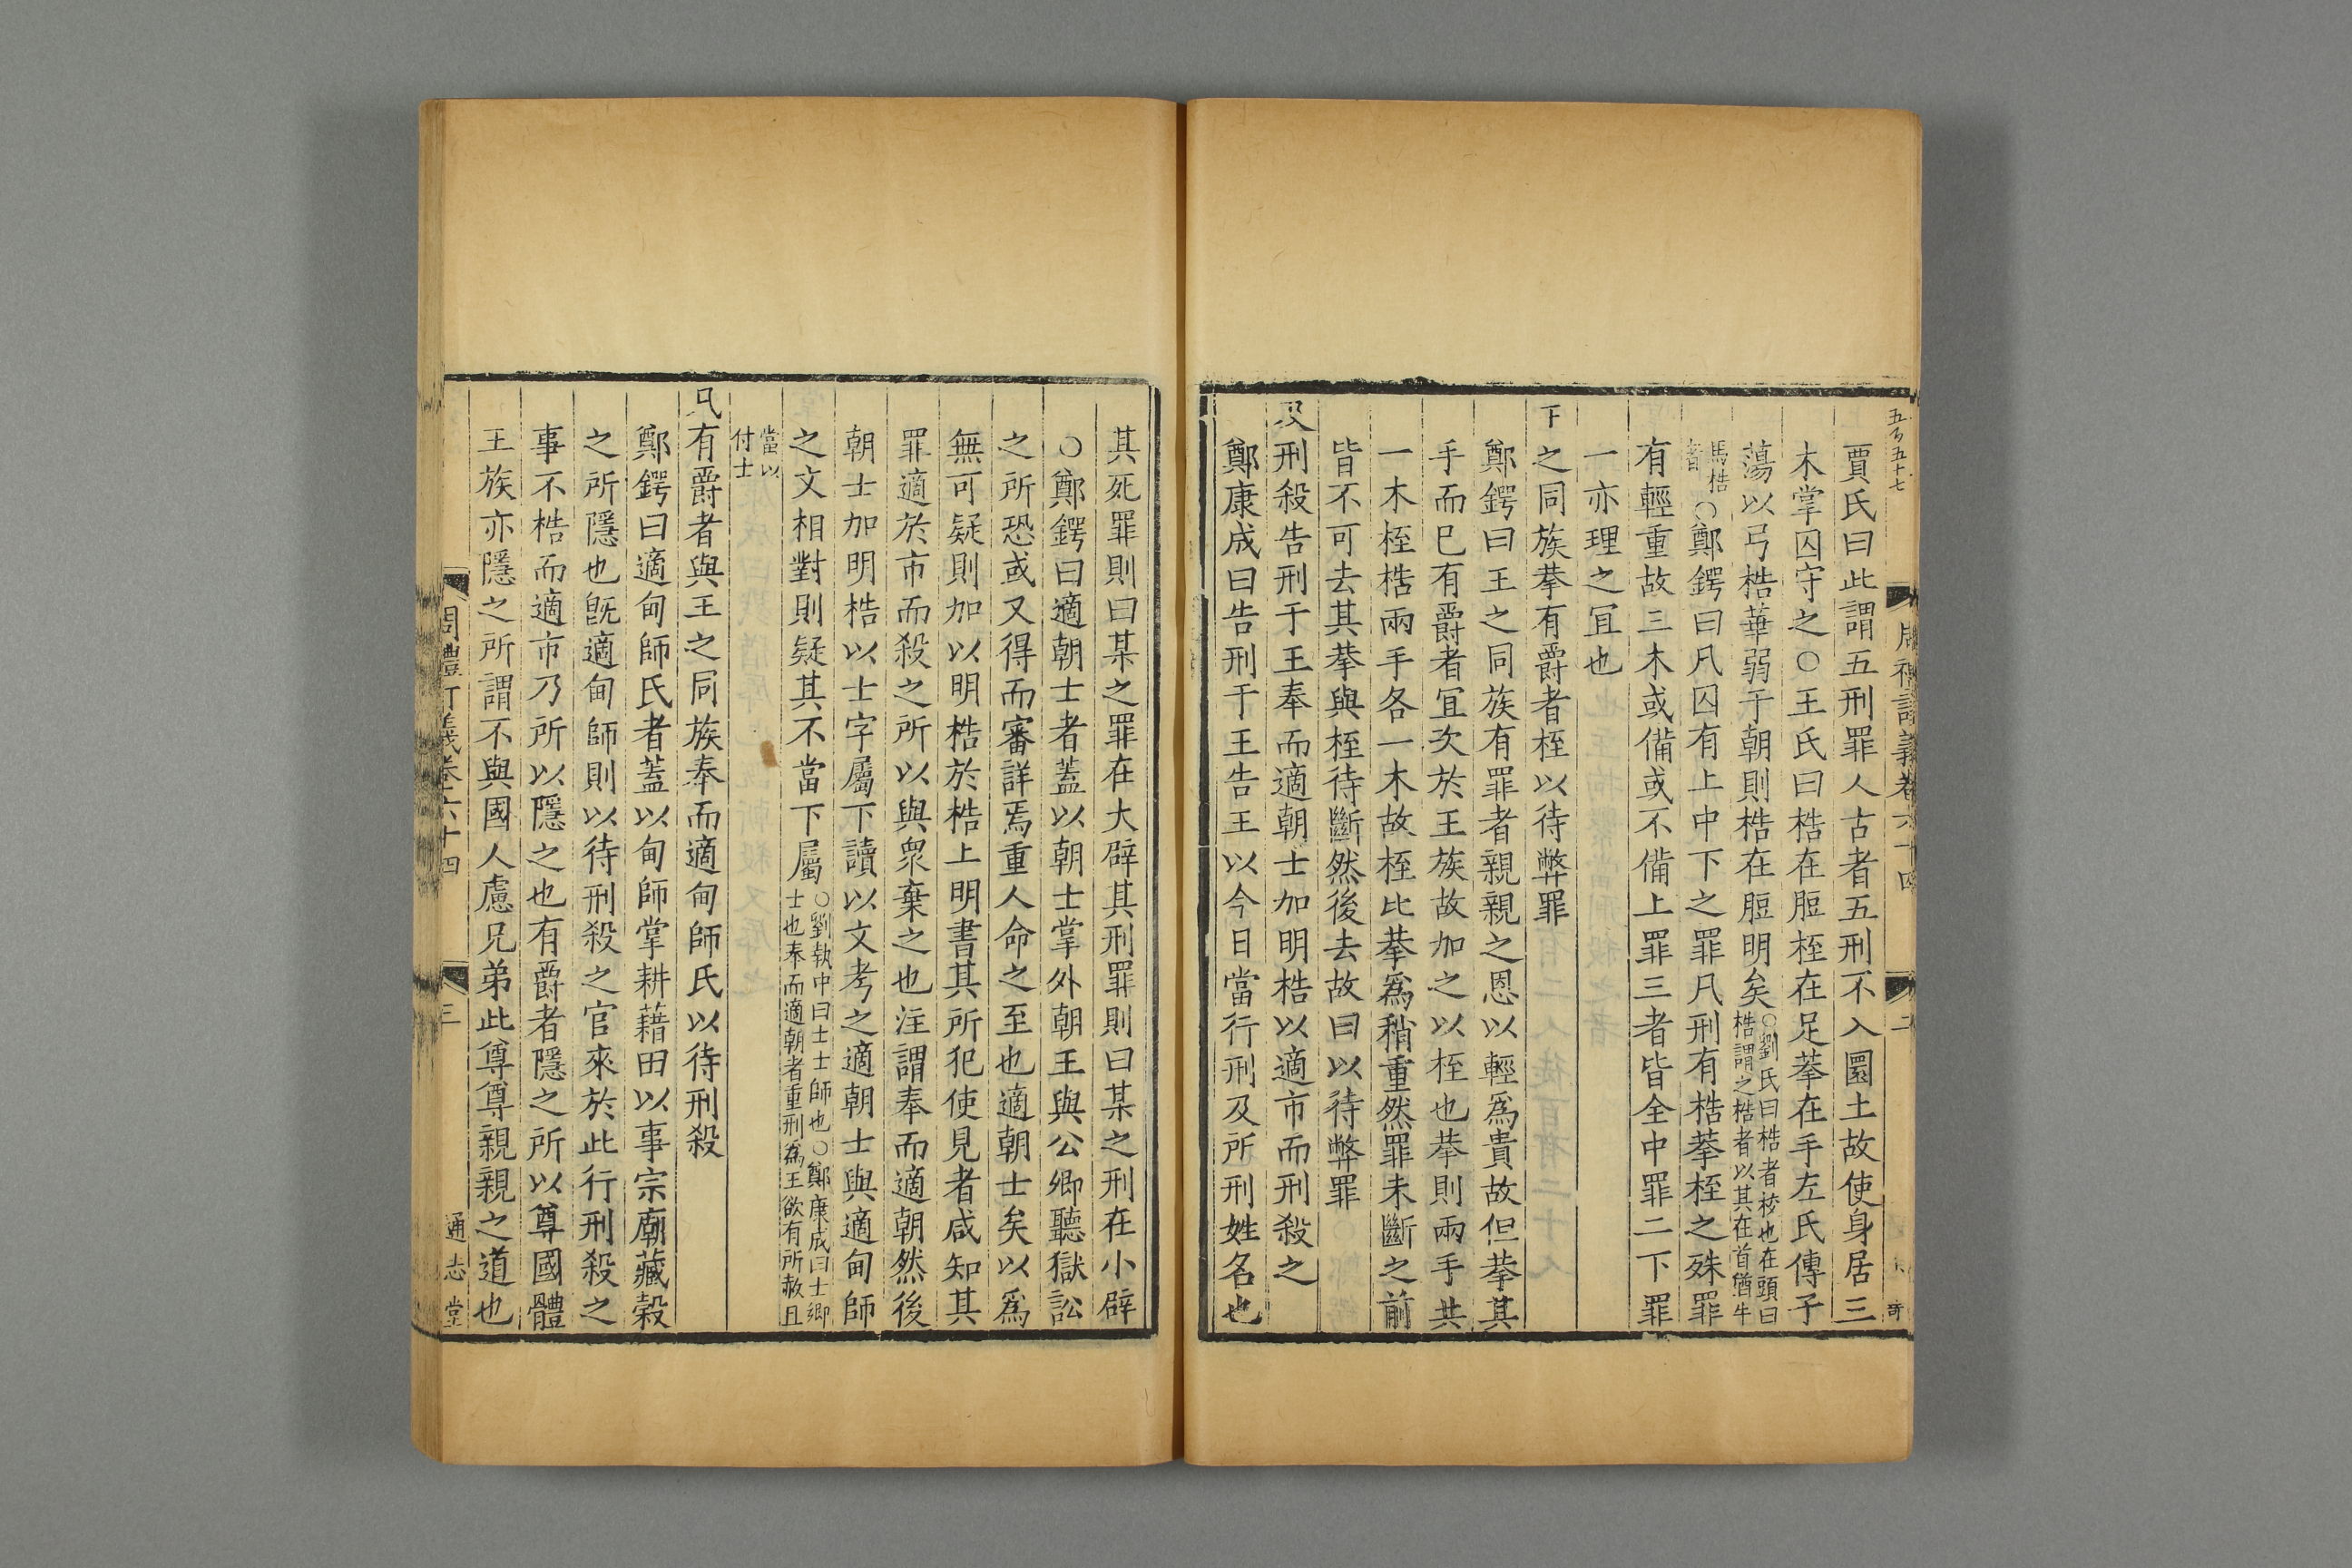 五百五十七
周禮訂義卷六十四
二
賈氏曰此謂五刑罪人古者五刑不入圜土故使身居三
木掌囚守之○王氏曰梏在脰桎在足拲在手左氏傳子
蕩以弓梏華弱于朝則梏在脰明矣○劉氏曰梏者桉也在頭曰
梏謂之梏者以其在首猶牛
馬梏
者○鄭鍔曰凡囚有上中下之罪凡刑有梏拲桎之殊罪
有輕重故三木或備或不備上罪三者皆全中罪二下罪
一亦理之冝也
之同族拲有爵者桎以待弊罪
鄭鍔曰王之同族有罪者親親之恩以輕爲貴故但拲其
手而巳有爵者冝次於王族故加之以桎也拲則兩手共
一木桎梏兩手各一木故桎比拲爲稍重然罪未斷之前
皆不可去其拲與桎待斷然後去故曰以待弊罪
及刑殺告刑于王奉而適朝士加明梏以適市而刑殺之
鄭康成曰告刑于王告王以今日當行刑及所刑姓名也
其死罪則曰某之罪在大辟其刑罪則曰某之刑在小辟
○鄭鍔曰適朝士者蓋以朝士掌外朝王與公卿聽獄訟
之所恐或又得而審詳焉重人命之至也適朝士矣以爲
無可疑則加以明梏於梏上明書其所犯使見者咸知其
罪適於市而殺之所以與衆棄之也注謂奉而適朝然後
朝士加明梏以士字屬下讀以文考之適朝士與適甸師
之文相對則疑其不當下屬○劉執中曰士士師也○鄭康成曰士鄉
士也奉而適朝者重刑爲王欲有所赦且
當以
付士
凡有爵者與王之同族奉而適甸師氏以待刑殺
鄭鍔曰適甸師氏者蓋以甸師掌耕藉田以事宗廟藏榖
之所隱也旣適甸師則以待刑殺之官來於此行刑殺之
事不梏而適市乃所以隱之也有爵者隱之所以尊國體
王族亦隱之所謂不與國人慮兄弟此尊尊親親之道也
周禮訂義卷六十四
三
通志堂